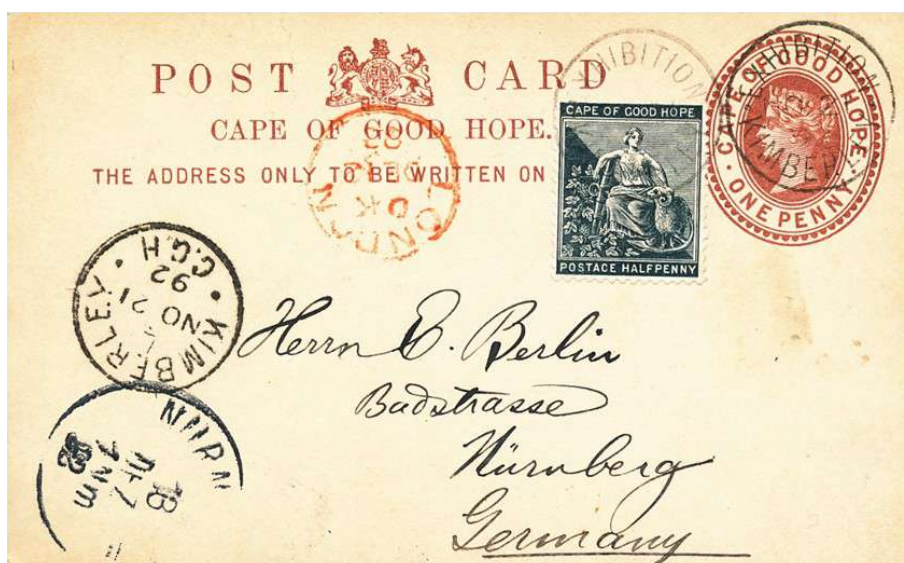 POST CARD
CAPE OF GOOD HOPE.
THE ADDRESS ONLY TO BE WRITTEN ON
CAPE OF GOOD HOPE
POSTAGE HALFPENNY
CAPE OF GOOD HOPE
ONE PENNY
EXHIBITION
XHIBITION
KIMBER
LONDON
DK
KIMBERLEY
C.G.H
NO 21
92
NURN
18
DEZ
92
Herrn E. Berlin
Badstrasse
Nürnberg
Germany